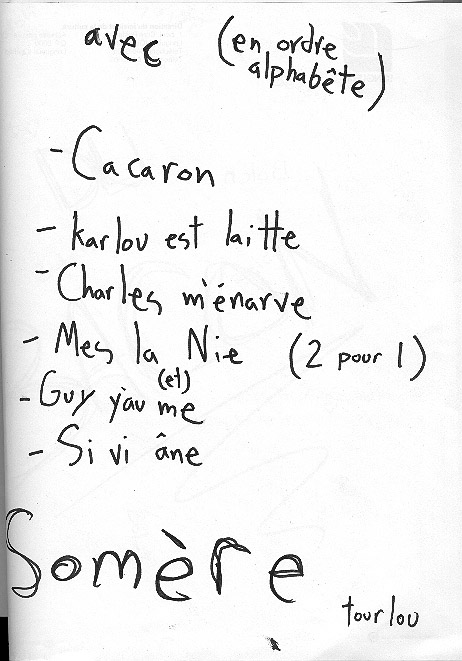 avec (en ordre
alphabête)
- Cacaron
- karlou est laitte
- Charles m'énarve
- Mes la Nie (2 pour 1)
- Guy y'au (et) me
- Si vi âne
Somère
tourlou